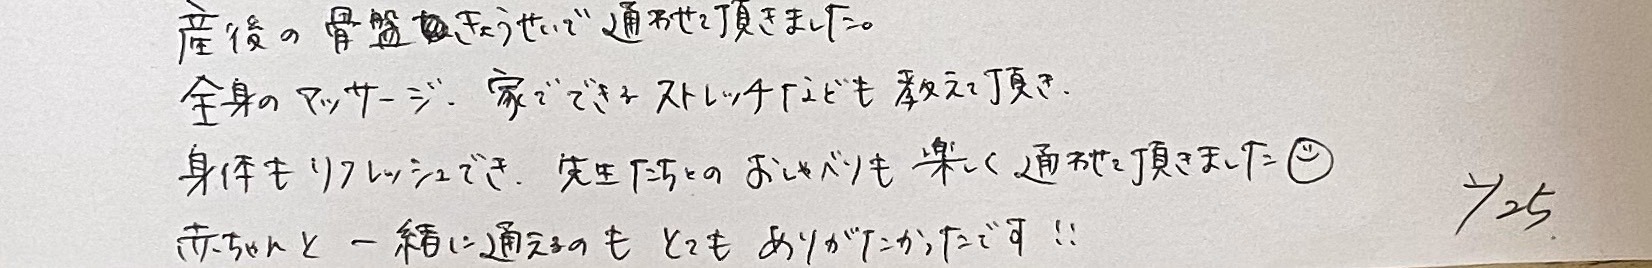 産後の骨盤きょうせいで通わせて頂きました。
全身のマッサージ、家でできるストレッチなども教えて頂き、
身体もリフレッシュでき、先生たちとのおしゃべりも楽しく通わせて頂きました☺
赤ちゃんと一緒に通えるのもとてもありがたかったです!!
7/25